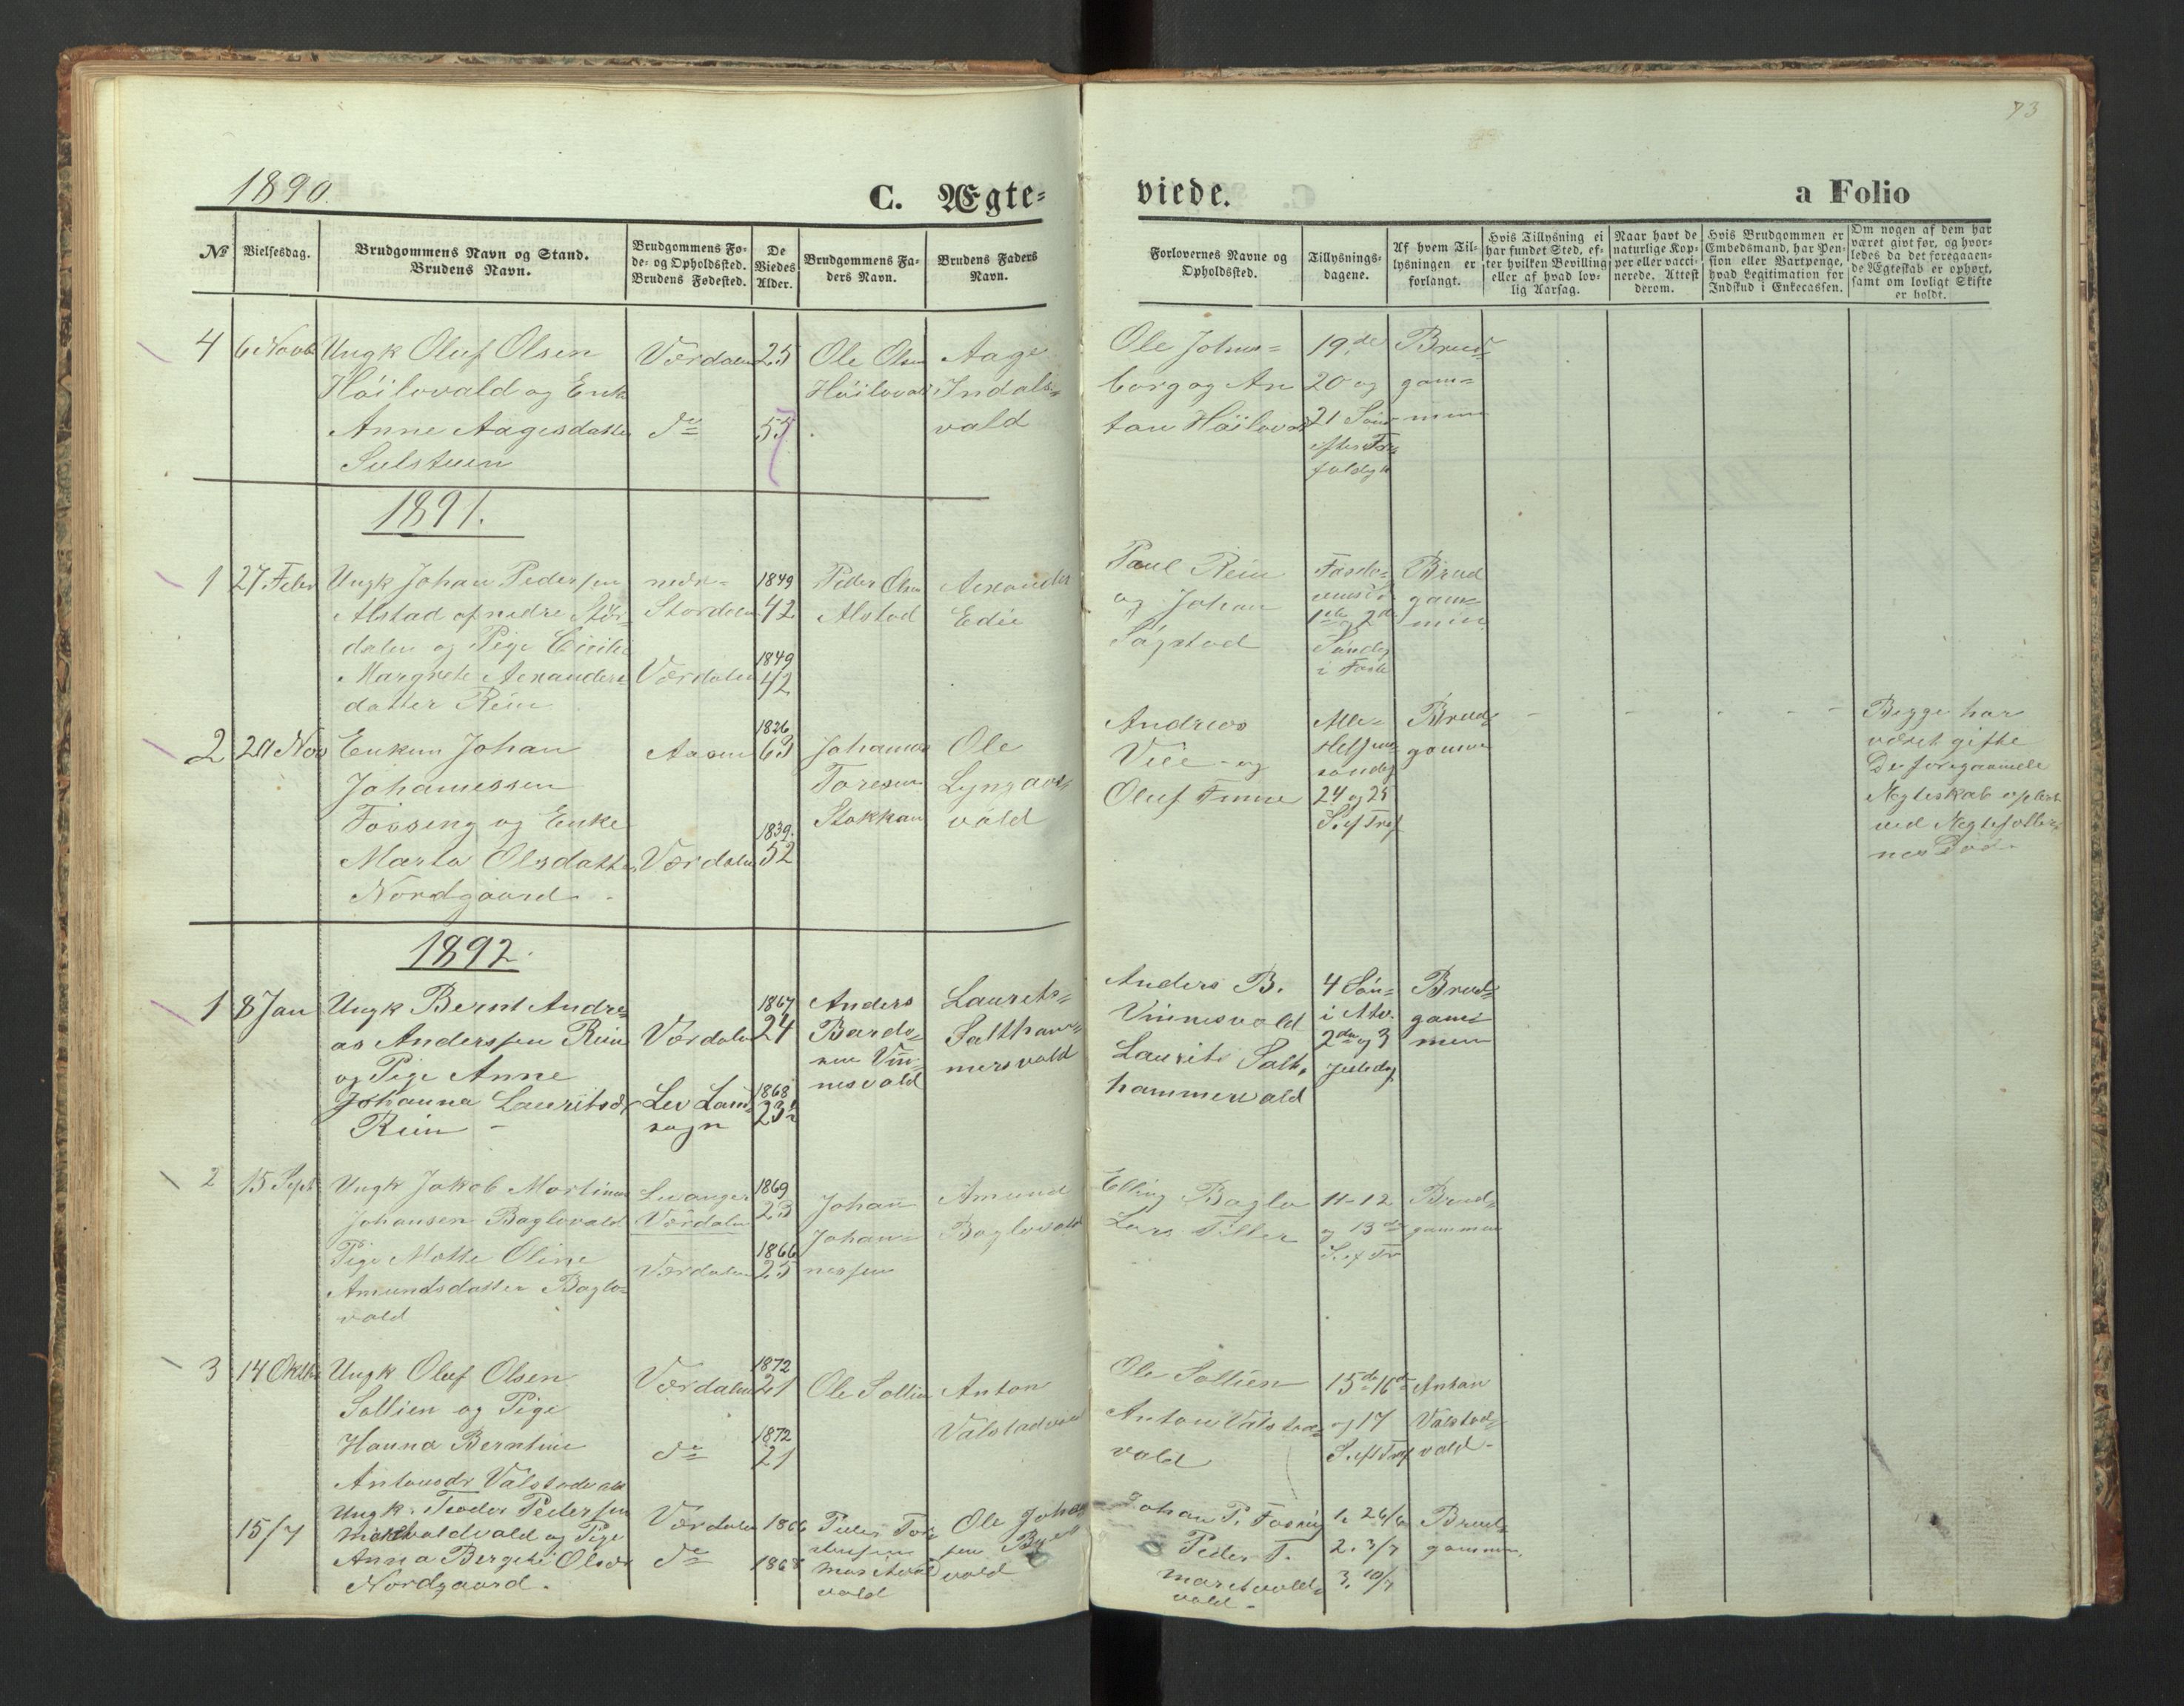 73
1890.
C. Ægte=
viede.
a Folio
No
Vielsesdag.
Brudgommens Navn og Stand.
Brudens Navn.
Brudgommens Fø=
de= og Opholdssted.
Brudens Fødested.
De
Viedes
Alder.
Brudgommens Fa=
ders Navn.
Brudens Faders
Navn.
Forlovernes Navne og
Opholdssted.
Tillysnings=
dagene.
Af hvem Til=
lysningen er
forlangt.
Hvis Tillysning ei
har fundet Sted, ef=
ter hvilken Bevilling
eller af hvad lov=
lig Aarsag.
Naar havt de
naturlige Kop=
per eller vacci=
nerede. Attest
derom.
Hvis Brudgommen er
Embedsmand, har Pen=
sion eller Vartpenge,
hvad Legitimation for
Indskud i Enkecassen.
Om nogen af dem har
været givt før, og hvor=
ledes da det foregaaen=
de Ægteskab er ophørt,
samt om lovligt Skifte
er holdt.
4
6 Novb
Ungk Oluf Olsen
Höilovald og Enk
Anne Aagesdatte
Sulstuen
Værdalen
do
25
55
Ole Olsn
Höilovald
Aage
Indals=
vald
Ole Johns=
borg og An
ton Höilovald
19de
20 og
21 Sönd
efter Tre
foldigh
Brud=
gom=
men
1891.
1
27 Febr
Ungk Johan Pedersen
Alstad af nedre Stör
dalen og Pige Cecilie
Margrete Alexanders
datter Rein
nedr=
Stördalen
Værdalen
1849
42
1849
42
Peder Olsn
Alstad
Alexander
Edie
Paul Rein
og Johan
Sågstad
Faste=
1ste og 2de
Söndg
i Faste
Brud
gom=
men
2
20 Nov
Enkem Johan
Johannessen
Fossing og Enke
Marta Olsdatter
Nordgaard -
Aasen
Værdalen
1826
63
1839.
52
Johannes
Toresen
Stokkan
Ole
Lyngaas
vald
Andreas
Vee - og
Oluf Tinne
Alle=
Helgens
söndg
24 og 25
S. ef Tref
Brud=
gomm
Begge har
været gifte
Det foregaaende
Ægteskab opløst
ved Ægtefoller
nes Död
1892.
1
8 Jan
Ungk Bernt Andre=
as Anderssen Rein
og Pige Anne
Johanna Lauritsdr
Rein -
Værdalen
Lev Land
sogn
1867
24
1868
23½
Anders
Bardo=
sen Vin=
nesvald
Laurits=
Saltham=
mersvald
Anders B.
Vinnesvald
Laurits Salt.
hammervald
4 Sön=
i Adv.
2den og 3
Juledg
Brud=
gom=
men
2
15 Sept
Ungk Jakob Martinus
Johansen Baglovald
Pige Mette Oline
Amundsdatter Baglo=
vald
Levanger
Værdalen
Værdalen
1869
23
1866
25
Johan
Johan=
nessen
Amund
Baglovald
Elling Baglo
Lars Tiller
11 - 12
og 13de
S. ef Tr
Brud=
gommen
3
14 Oktbr
Ungk Oluf Olsen
Sollien og Pige
Hanna Berntine
Antonsdr Válstadvald
Værdalen
do
1872
21
1872
21
Ole Sollien
Anton
Valstadvald
Ole Sollien
Anton Válstad=
vald
15de 16de
og 17
S. ef Tref
Anton
Valstad=
vald -
15/7
Ungk. Teodor Pedersen
Maritvoldvald og Pige
Anna Bergite Olsdr
Nordgaard.
Værdalen
do
1866
1868
Peder Tor
Maritvold
vald
Ole Johan
sen Bye
vald
Johan P. Fossing
Peder T.
Maritvold=
vald -
1. 26/6
2. 3/7
3. 10/7
Brud=
gommen.